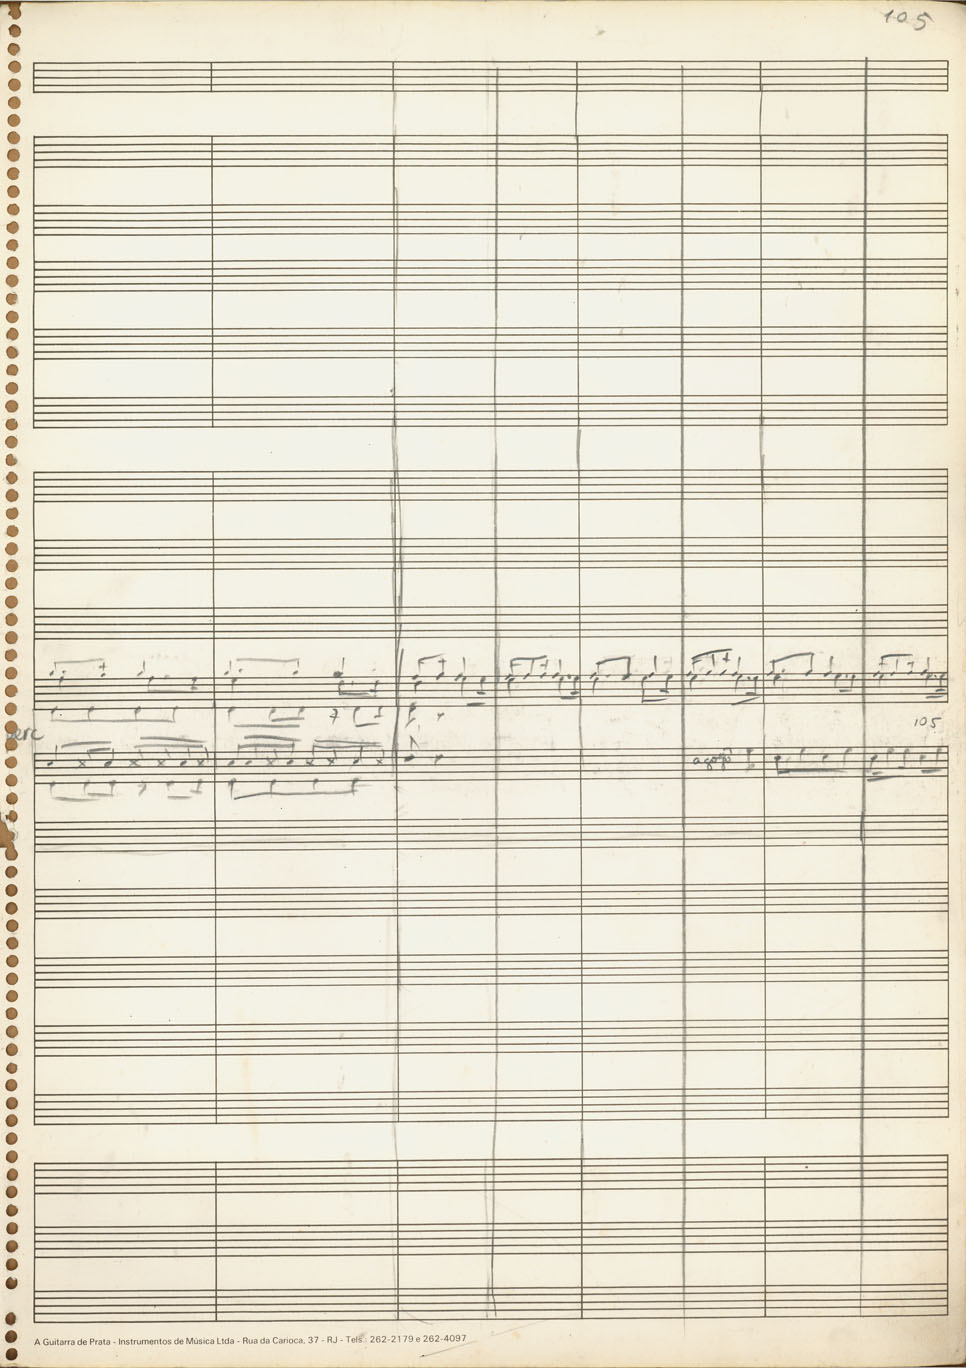 105
erc
105
agogô
A Guitarra de Prata - Instrumentos de Música Ltda - Rua da Carioca, 37 - RJ - Tels.: 262-2179 e 262-4097